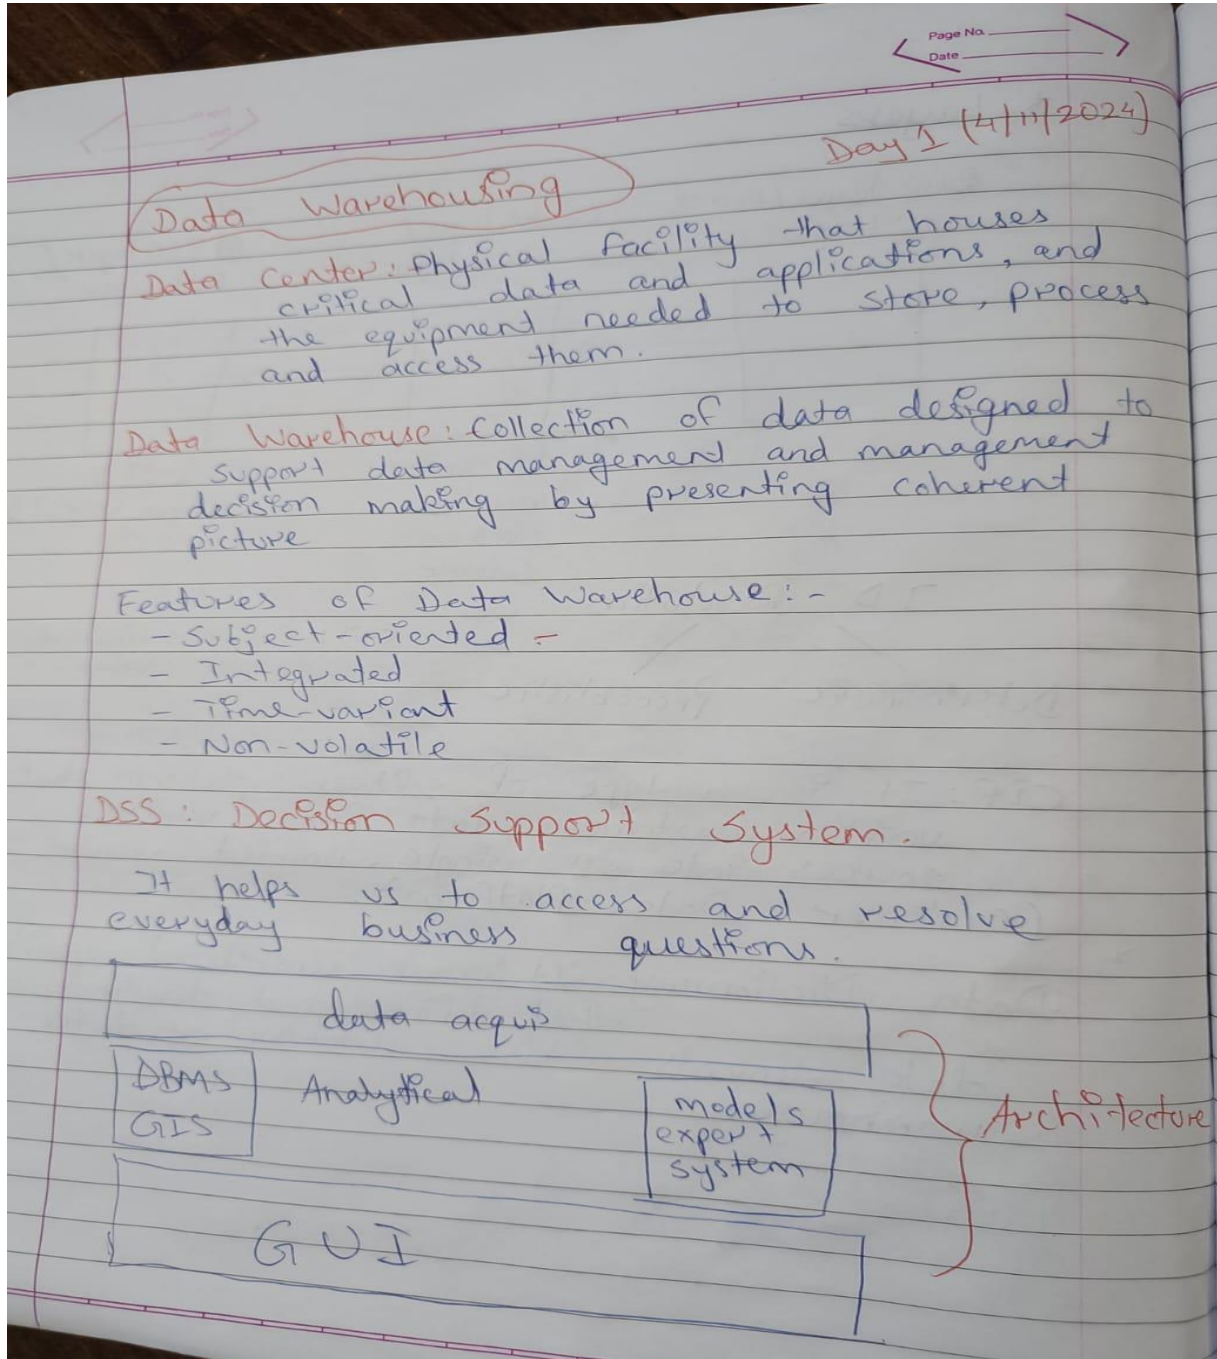 Page No.
Date
Day 1 (4/11/2024)
Data Warehousing
Data Center: Physical facility that houses
critical data and applications, and
the equipment needed to store, process
and access them.
Data Warehouse: Collection of data designed to
support data management and management
decision making by presenting coherent
picture
Features of Data Warehouse:-
- Subject-oriented -
- Integrated
- Time-variant
- Non-volatile
DSS: Decision Support System.
It helps us to access and resolve
everyday business questions.
data acquis
DBMS
GIS
Analytical
models
expert
system
Architecture
GUI